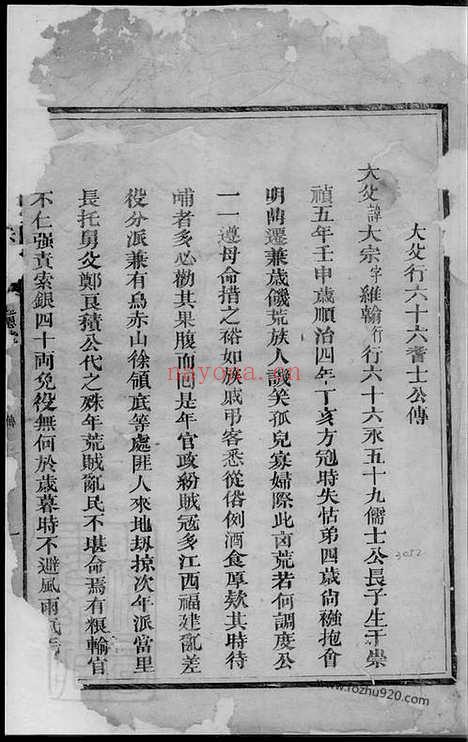 大父行六十六耆士公傳
大父諱大宗字維翰行行六十六永五十九儒士公長子生于崇
禎五年壬申歲順治四年丁亥方冠時失怙弟四歲尙襁抱會
明鼎遷兼歲饑荒族人談笑孤兒寡婦際此凶荒若何調度公
一一遵母命措之裕如族戚弔客悉從俗例酒食厚欵其時待
哺者多必勸其果腹而巳是年官政紛賊冦多江西福建亂差
役分派兼有烏赤山徐領底等處匪人來地刼掠次年派當里
長托舅父鄭良積公代之殊年荒賊亂民不堪命焉有粮輸官
不仁强責索銀四十両免役無何於歲暮時不避風雨
3052
nayona.cn
www.fozhu920.com